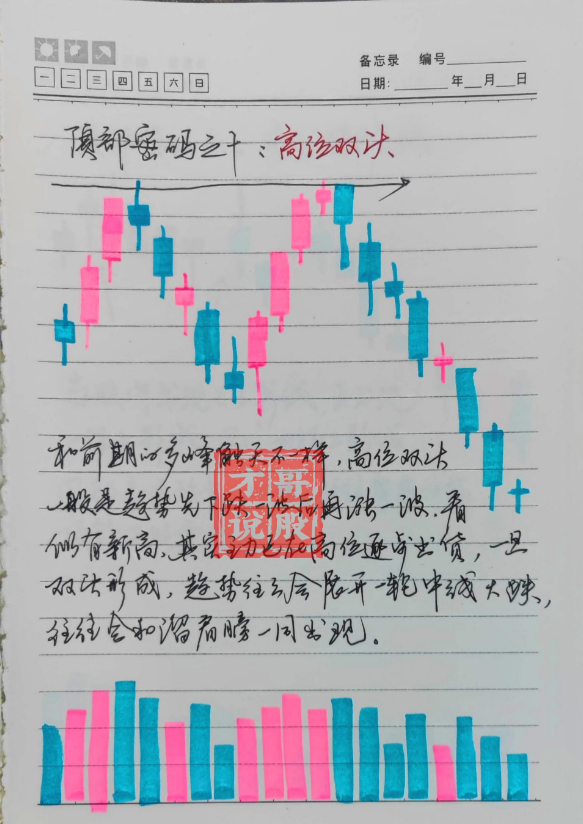 备忘录 编号
一 二 三 四 五 六 日
日期: 年 月 日
顶部密码之十:高位双决
和前期的多峰触天不一样,高位双决
一般是趋势先下跌一波后再涨一波,看
似有新高,其实主力已在高位逐步出货,一旦
双决形成,趋势往往会展开一轮中线大跌,
往往会和溜肩膀一同出现。
才哥说股